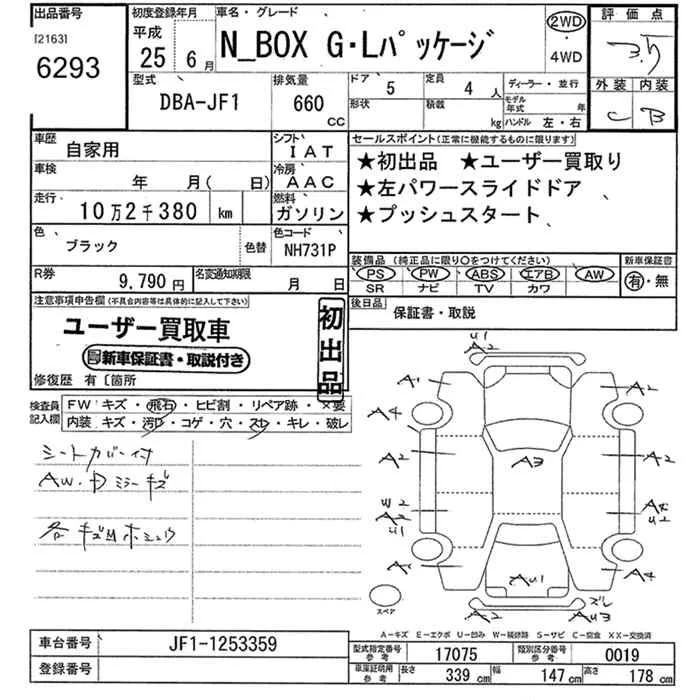 出品番号 初度登録年月 車名・グレード 評価点
[2163] 6293
平成 25年 6月
N_BOX G・Lパッケージ
2WD ・ 4WD
3.5
外装 内装
C B
型式 DBA-JF1
排気量 660 CC
ドア 5
定員 4 人
形状 積載 kg
ディーラー・並行
モデル年式 年
ハンドル 左・右
車歴 自家用
シフト IAT
車検 年 月( 日)
冷房 AAC
走行 10万2千380 km
燃料 ガソリン
色 ブラック 色替
色コード NH731P
R券 9,790円
名変通知期限 月 日
セールスポイント(正常に機能するものに限ります)
★初出品 ★ユーザー買取り
★左パワースライドドア
★プッシュスタート
装備品 (純正品に限り○をつけてください) 新車保証書
PS PW ABS エアB AW
SR ナビ TV カワ
有・無
後日品 保証書・取説
注意事項申告欄(不具合内容等は具体的に記入して下さい)
ユーザー買取車
新車保証書・取説付き
初出品
修復歴 有〔箇所
検査員記入欄
FW キズ・飛石・ヒビ割・リペア跡・×要
内装 キズ・汚レ・コゲ・穴・スレ・キレ・破レ
シートカバー付
AW・Dミラーキズ
U1
A2
A1 A2
A4 A4
A2 A3 A2
W2
A2
U1
U2
A1 AU1 A4
スペア
A2 スレ
AU3
A-キズ E-エクボ U-凹み W-補修跡 S-サビ C-腐食 XX-交換済
車台番号 JF1-1253359
登録番号
型式指定番号 参考 17075
類別区分番号 参考 0019
車庫証明用 参考 長さ 339 cm 幅 147 cm 高さ 178 cm